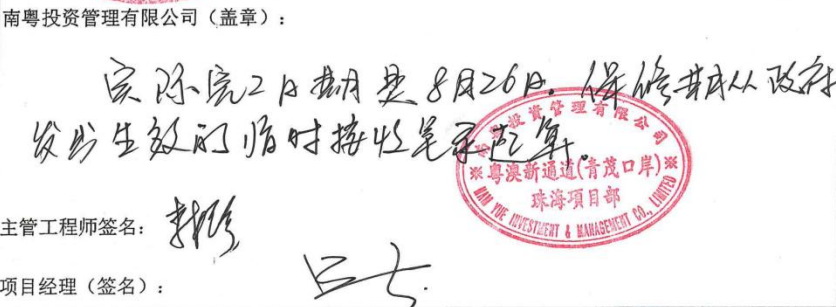 南粤投资管理有限公司（盖章）：
实际完工日期是8月26日。保修期从政府
发出生效的临时接收笔录起算。
投資管理有限公司
※粤澳新通道(青茂口岸)※
珠海項目部
NAM YUE INVESTMENT & MANAGEMENT CO., LIMITED
主管工程师签名：
项目经理（签名）：